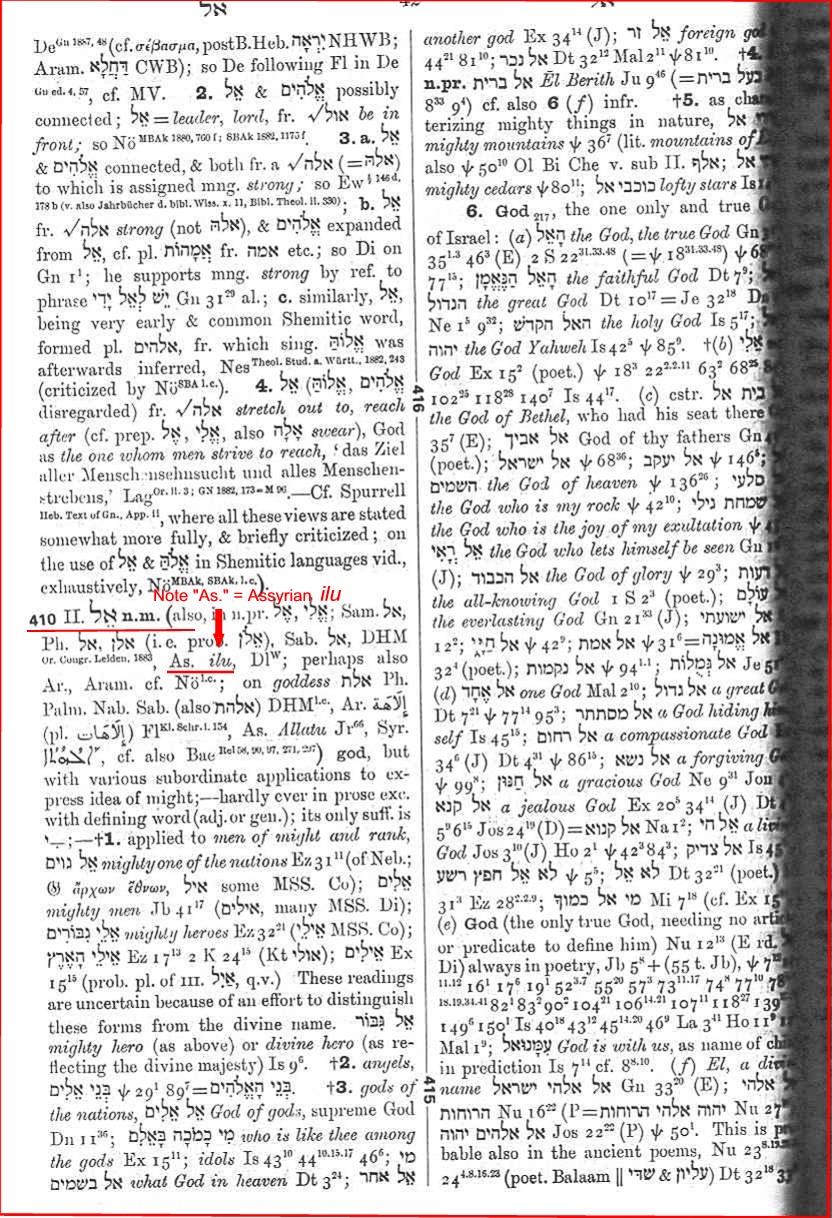 אל
De Gn 1887, 48 (cf. σέβασμα, post B. Heb. יִרְאָה NHWB;
Aram. דַּחֲלָא CWB); so De following Fl in De
Gn ed. 4, 57, cf. MV. 2. אֵל & אֱלֹהִים possibly
connected; אֵל = leader, lord, fr. √אול be in
front; so Nö MBAk 1880, 760 f; SBAk 1882, 1175 f. 3. a. אֵל
& אֱלֹהִים connected, & both fr. a √אלה (=אלהּ)
to which is assigned mng. strong; so Ew § 146 d,
178 b (v. also Jahrbücher d. bibl. Wiss. x. 11, Bibl. Theol. ii. 330); b. אֵל
fr. √אלה strong (not אלהּ), & אֱלֹהִים expanded
from אֵל, cf. pl. אֲמָהוֹת fr. אמה etc.; so Di on
Gn 1¹; he supports mng. strong by ref. to
phrase יֶשׁ לְאֵל יָדִי Gn 31²⁹ al.; c. similarly, אֵל,
being very early & common Shemitic word,
formed pl. אלהים, fr. which sing. אֱלוֹהַּ was
afterwards inferred, Nes Theol. Stud. a. Württ., 1882, 243
(criticized by Nö SBA l.c.). 4. אֵל (אֱלוֹהַּ, אֱלֹהִים
disregarded) fr. √אלה stretch out to, reach
after (cf. prep. אֶל, אֱלֵי, also אָלָה swear), God
as the one whom men strive to reach, ‘das Ziel
aller Menschensehnsucht und alles Menschen-
strebens,’ Lag Or. ii. 3; GN 1882, 173=M 96.—Cf. Spurrell
Heb. Text of Gn., App. ii, where all these views are stated
somewhat more fully, & briefly criticized; on
the use of אֵל & אלהּ in Shemitic languages vid.,
exhaustively, Nö MBAk, SBAk, l.c.).
Note "As." = Assyrian ilu
410 II. אֵל n.m. (also, in n.pr. אֶל, אֱלִי; Sam. אל,
Ph. אל, אלן (i.e. prob. אֵלֹן), Sab. אל, DHM
Or. Congr. Leiden, 1883, As. ilu, Dl W; perhaps also
Ar., Aram. cf. Nö l.c.; on goddess אלת Ph.
Palm. Nab. Sab. (also אלהת) DHM l.c., Ar.
(pl.) Fl Kl. Schr. i. 154, As. Allatu Jr⁶⁶, Syr.
cf. also Bae Rel 58, 90, 97, 271, 297) god, but
with various subordinate applications to ex-
press idea of might;—hardly ever in prose exc.
with defining word (adj. or gen.); its only suff. is
־ִי;—†1. applied to men of might and rank,
אֵל גוים mighty one of the nations Ez 31¹¹ (of Neb.;
𝔊 ἄρχων ἐθνῶν, איל some MSS. Co); אֵלִים
mighty men Jb 41¹⁷ (אילים, many MSS. Di);
אֵלֵי גִבּוֹרִים mighty heroes Ez 32²¹ (אֵילֵי MSS. Co);
אֵילֵי הָאָרֶץ Ez 17¹³ 2 K 24¹⁵ (Kt אולי); אֵילִים Ex
15¹⁵ (prob. pl. of III. אַיִל, q.v.) These readings
are uncertain because of an effort to distinguish
these forms from the divine name. אֵל גִּבּוֹר
mighty hero (as above) or divine hero (as re-
flecting the divine majesty) Is 9⁶. †2. angels,
בְּנֵי אֵלִים ψ 29¹ 89⁷=בְּנֵי הָאֱלֹהִים. †3. gods of
the nations, אֵל אֵלִים God of gods, supreme God
Dn 11³⁶; מִי כָמֹכָה בָּאֵלִם who is like thee among
the gods Ex 15¹¹; idols Is 43¹⁰ 44¹⁰·¹⁵·¹⁷ 46⁶; מי
אל בשמים what God in heaven Dt 3²⁴; אל אחר
another god Ex 34¹⁴ (J); אֵל זר foreign
44²¹ 81¹⁰; אל נכר Dt 32¹² Mal 2¹¹ ψ 81¹⁰. †4.
n.pr. אל ברית Ēl Berith Ju 9⁴⁶ (=בעל ברית
8³³ 9⁴) cf. also 6 (f) infr. †5. as
terizing mighty things in nature,
mighty mountains ψ 36⁷ (lit. mountains of
also ψ 50¹⁰ Ol Bi Che v. sub II. אלף; אל
mighty cedars ψ 80¹¹; כוכבי אל lofty stars Is
6. God 217, the one only and true
of Israel: (a) הָאֵל the God, the true God Gn
35¹·³ 46³ (E) 2 S 22³¹·³³·⁴⁸ (=ψ 18³¹·³³·⁴⁸) ψ
77¹⁵; הָאֵל הַנֶּאֱמָן the faithful God Dt 7⁹;
הגדול the great God Dt 10¹⁷=Je 32¹⁸
Ne 1⁵ 9³²; האל הקדש the holy God Is 5¹⁷;
יהוה the God Yahweh Is 42⁵ ψ 85⁹. †(b) אֵלִי
God Ex 15² (poet.) ψ 18³ 22²·²·¹¹ 63² 68²⁵
102²⁵ 118²⁸ 140⁷ Is 44¹⁷. (c) cstr. בית אל
416
the God of Bethel, who had his seat there
35⁷ (E); אל אביך God of thy fathers Gn
(poet.); אל ישראל ψ 68³⁶; אל יעקב ψ 146⁵;
השמים the God of heaven ψ 136²⁶; סלעי
the God who is my rock ψ 42¹⁰; שמחת גילי
the God who is the joy of my exultation ψ
אֵל רֳאִי the God who lets himself be seen Gn
(J); אל הכבוד the God of glory ψ 29³; דעות
the all-knowing God 1 S 2³ (poet.); עוֹלָם
the everlasting God Gn 21³³ (J); אל ישועתי
12²; אֵל חַיָּי ψ 42⁹; אל אמת ψ 31⁶=אֵל אֱמוּנָה
32⁴ (poet.); אל נקמות ψ 94¹·¹; אֵל גְּמֻלוֹת Je
(d) אֵל אֶחָד one God Mal 2¹⁰; אל גדול a great
Dt 7²¹ ψ 77¹⁴ 95³; אל מסתתר a God hiding
self Is 45¹⁵; אל רחום a compassionate God
34⁶ (J) Dt 4³¹ ψ 86¹⁵; אל נשא a forgiving
ψ 99⁸; אֵל חַנּוּן a gracious God Ne 9³¹ Jon
אל קנא a jealous God Ex 20⁵ 34¹⁴ (J) Dt
5⁹ 6¹⁵ Jos 24¹⁹ (D)=אל קנוא Na 1²; אל חי a
God Jos 3¹⁰ (J) Ho 2¹ ψ 42³ 84³; אל צדיק Is
לא אל חפץ רשע ψ 5⁵; לא אל Dt 32²¹ (poet.)
31³ Ez 28²·²·⁹; מי אל כמוך Mi 7¹⁸ (cf. Ex
(e) God (the only true God, needing no
or predicate to define him) Nu 12¹³ (E
Di) always in poetry, Jb 5⁸ + (55 t. Jb), ψ
11.12 16¹ 17⁶ 19¹ 52³·⁷ 55²⁰ 57³ 73¹¹·¹⁷ 74⁸ 77¹⁰
18.19.34.41 82¹ 83² 90² 104²¹ 106¹⁴·²¹ 107¹¹ 118²⁷
149⁶ 150¹ Is 40¹⁸ 43¹² 45¹⁴·²⁰ 46⁹ La 3⁴¹ Ho 11⁹
Mal 1⁹; עִמָּנוּאֵל God is with us, as name of
in prediction Is 7¹⁴ cf. 8⁸·¹⁰. (f) El, a
415
name אל אלהי ישראל Gn 33²⁰ (E); אל אלהי
הרוחות Nu 16²² (P=יהוה אלהי הרוחות Nu
אל אלהים יהוה Jos 22²² (P) ψ 50¹. This is
bable also in the ancient poems, Nu 23
24⁴·⁸·¹⁶·²³ (poet. Balaam || שדי & עליון) Dt 32¹⁸